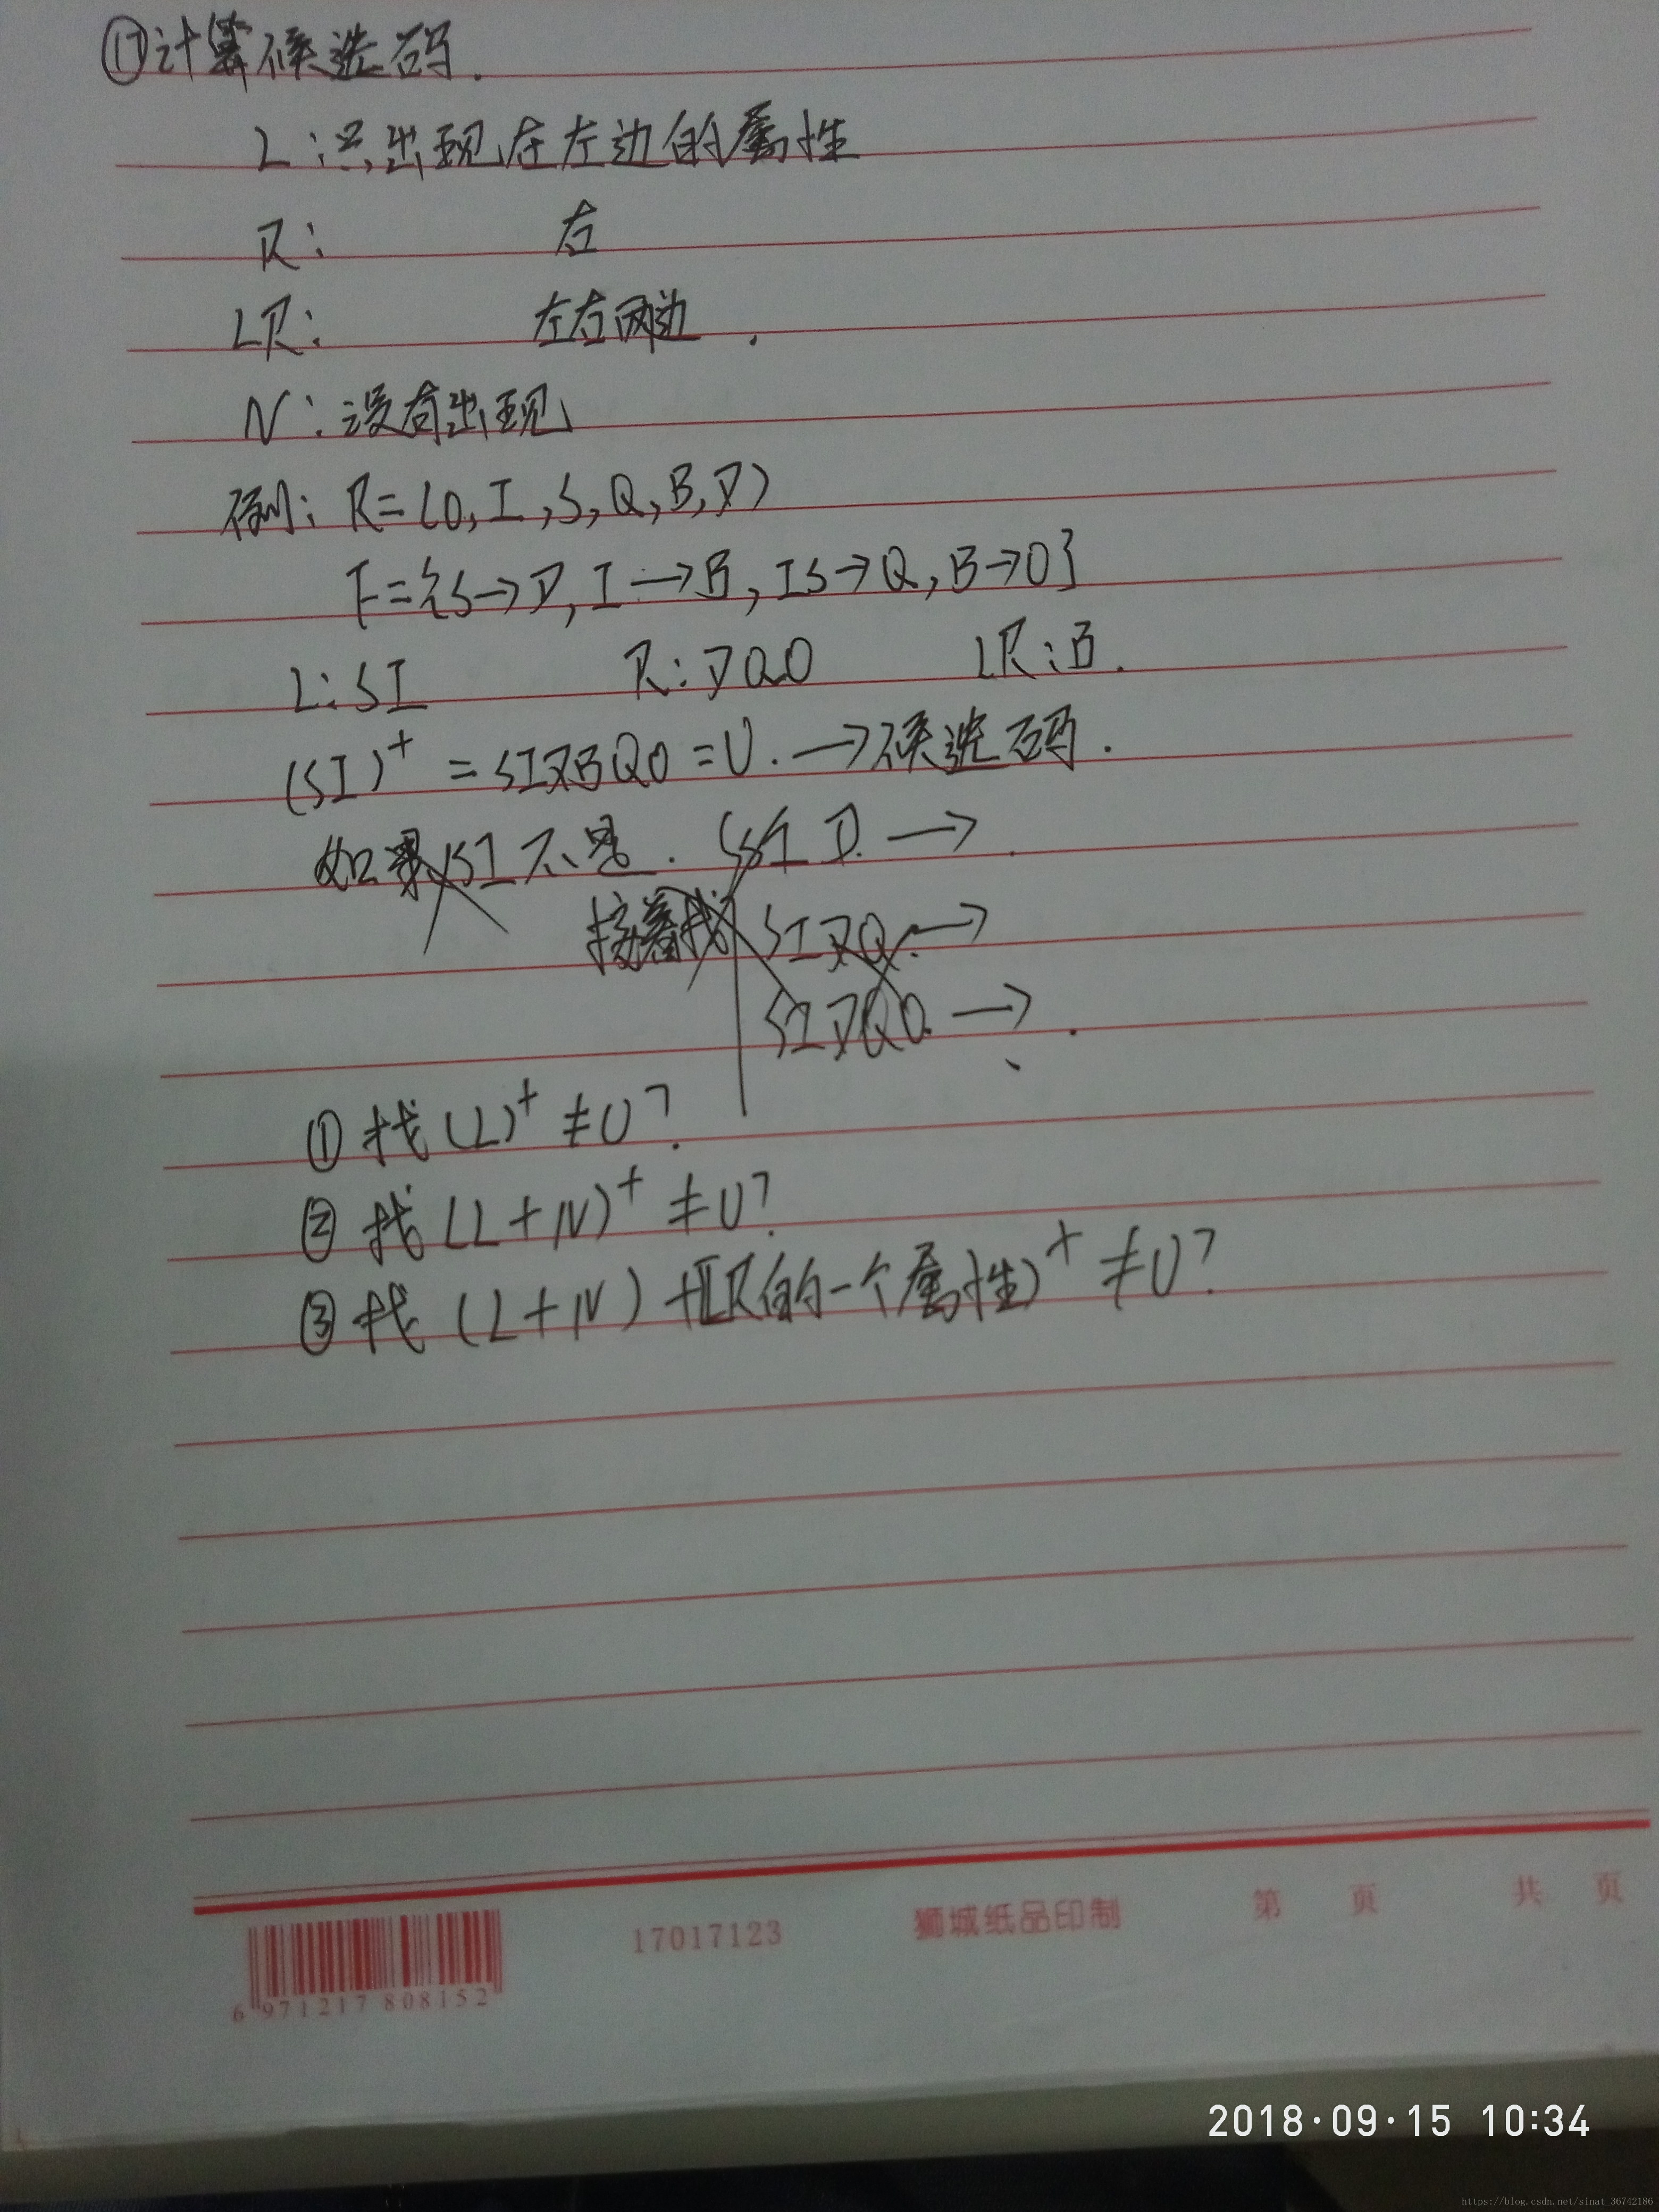 ⑰计算候选码.
L:只出现在左边的属性
R: 右
LR: 左右两边.
N:没有出现
例: R=(O,I,S,Q,B,D)
F={S→D,I→B,IS→Q,B→O}
L:SI R:DQO LR:B.
(SI)⁺=SIDBQO=U.→候选码.
如果SI不是. SID.→.
接着找 SIDQ.→
SIDQO.→.
①找(L)⁺≠U?
②找(L+N)⁺≠U?
③找(L+N)+LR的一个属性)⁺≠U?
6 971217 808152
17017123
狮城纸品印制
第 页 共 页
2018·09·15 10:34
https://blog.csdn.net/sinat_36742186